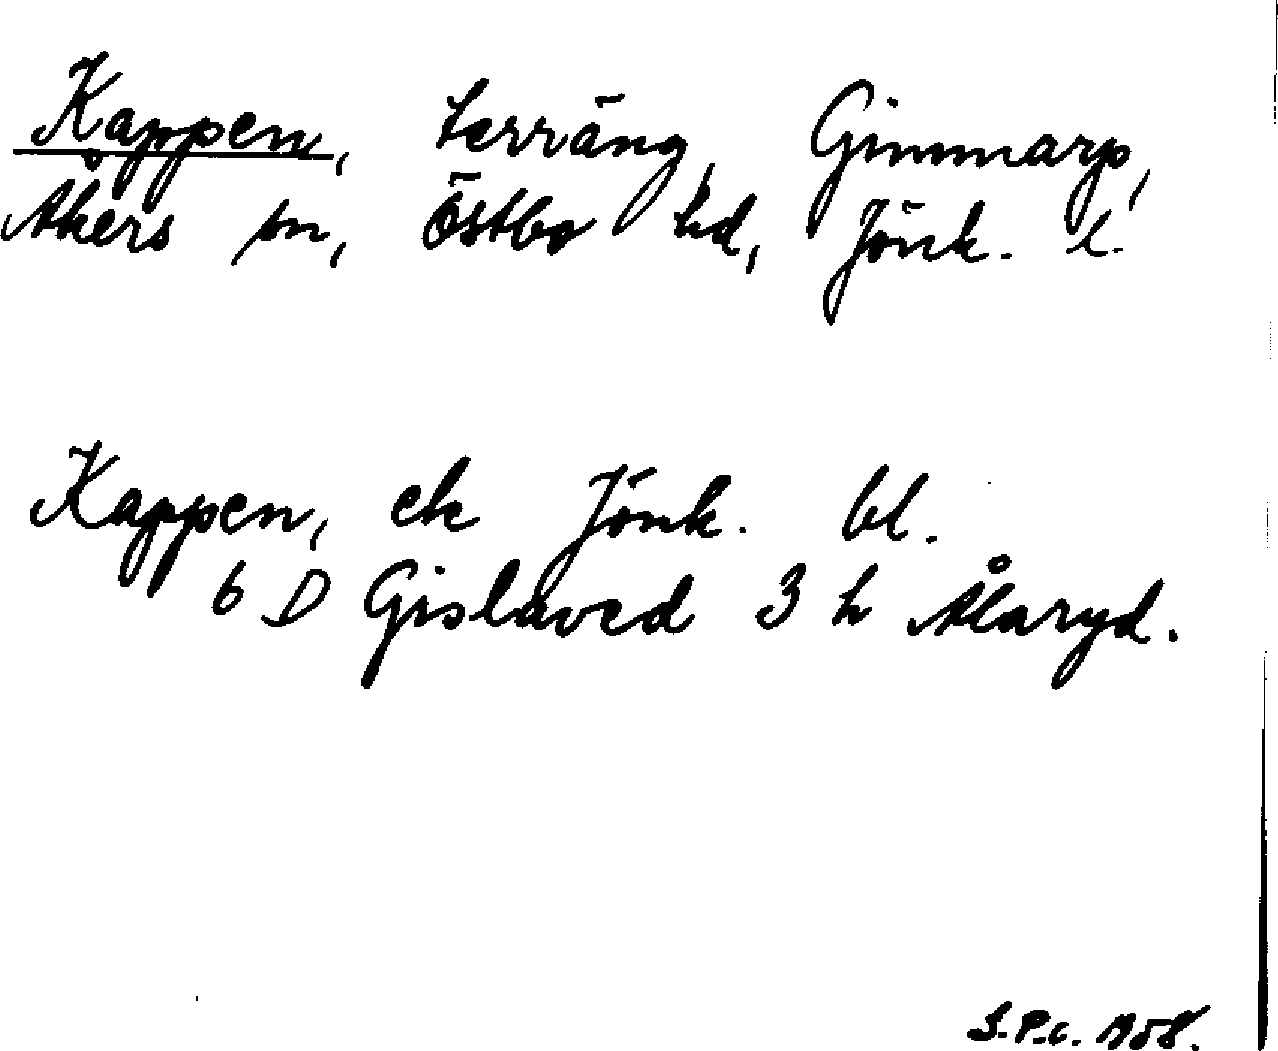 Kappen, terräng, Gimmarp,
Åkers sn, Östbo hd, Jönk. l.
Kappen, ek Jönk. bl.
6 D Gislaved 3 h Ålaryd.
S.P.c. 1958.